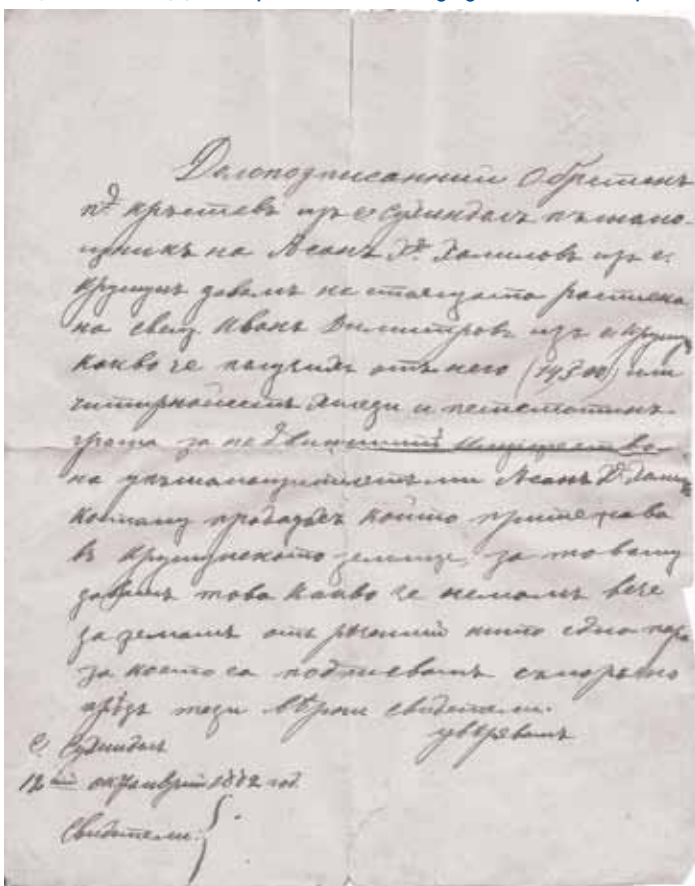 Долоподписанний Обретенъ
п. кръстевъ изъ с. Сухиндолъ пълно-
щникъ на Асанъ Х. Халиловъ изъ с.
Крушунъ давамъ настоящата росписка
на Иванъ Димитровъ изъ с.
какво че получихъ отъ него (14500) или
хиляди и петстотинъ
гроша за недвижимий имуществъ
на упълномощительтъ ми Асанъ Х.
комому продадохъ който притежава
въ Крушунското землище, за това му
давамъ това какво че немамъ вече
да земамъ отъ речений нито една пара
за което са подписвамъ саморъчно
предъ тези верни свидетели.
уверявамъ
с. Сухиндолъ
12 ий 1882 год.
Свидетели: